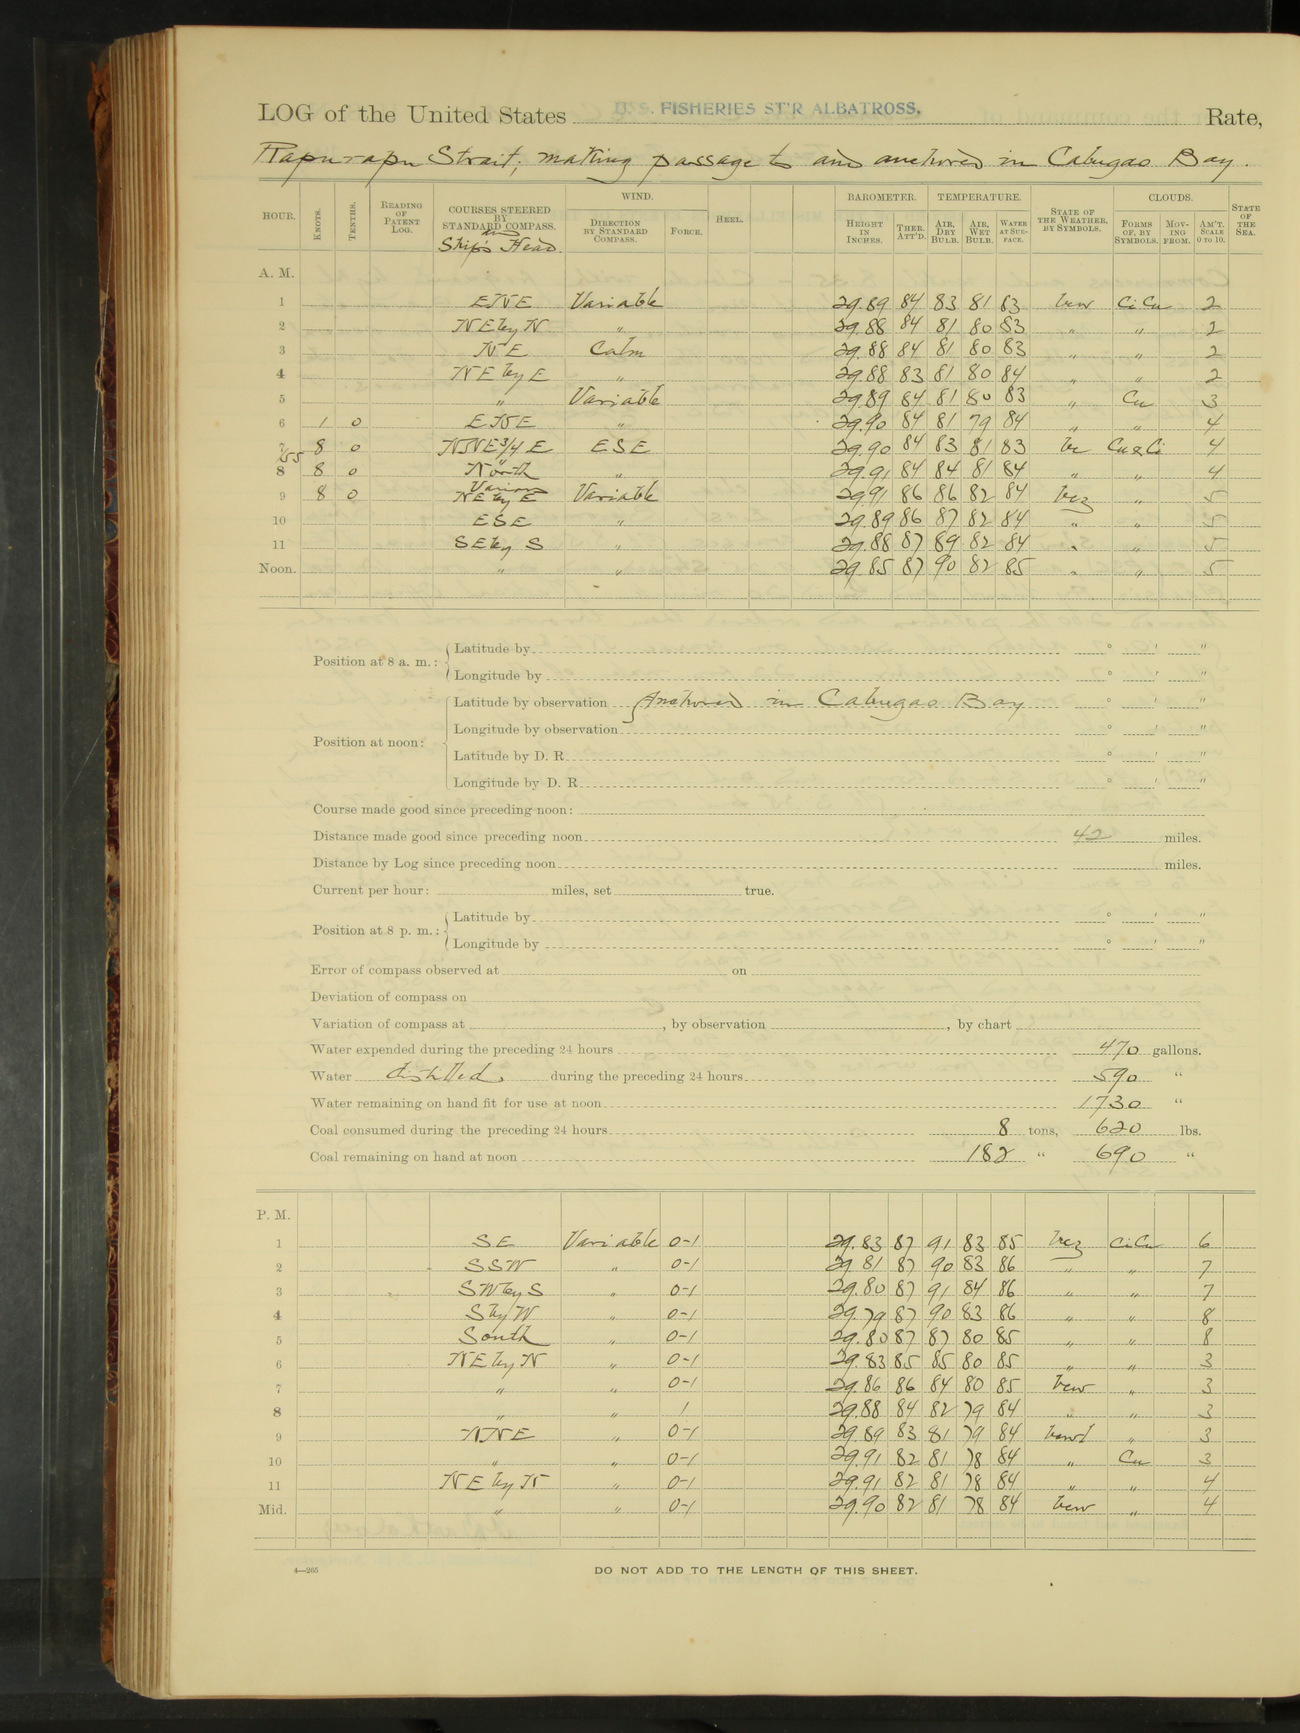 LOG of the United States U.S. FISHERIES ST'R ALBATROSS. Rate,
Rapu-rapu Strait, making passage to and anchored in Cabugao Bay.
HOUR. KNOTS. TENTHS. READING OF PATENT LOG. COURSES STEERED BY STANDARD COMPASS. and Ship's Head. WIND. DIRECTION BY STANDARD COMPASS. FORCE. HEEL. BAROMETER. HEIGHT IN INCHES. THER. ATT'D. TEMPERATURE. AIR, DRY BULB. AIR, WET BULB. WATER AT SURFACE. STATE OF THE WEATHER, BY SYMBOLS. CLOUDS. FORMS OF, BY SYMBOLS. MOVING FROM. AM'T. SCALE 0 TO 10. STATE OF THE SEA.
A. M.
1 ENE Variable 29.89 84 83 81 83 bcw Ci Cu 2
2 NE by N " 29.88 84 81 80 83 " " 2
3 NE Calm 29.88 84 81 80 83 " " 2
4 NE by E " 29.88 83 81 80 84 " " 2
5 " Variable 29.89 84 81 80 83 " Cu 3
6 1 0 ENE " 29.90 84 81 79 84 " " 4
7 8 0 NNE 3/4 E ESE 29.90 84 83 81 83 bc Cu & Ci 4
7/55
8 8 0 North " 29.91 84 84 81 84 " " 4
9 8 0 Various NE by E Variable 29.91 86 86 82 84 bcz " 5
10 ESE " 29.89 86 87 82 84 " " 5
11 SE by S " 29.88 87 89 82 84 " " 5
Noon. " " 29.85 87 90 82 85 " " 5
Position at 8 a. m.: Latitude by ° ' "
Longitude by ° ' "
Position at noon: Latitude by observation Anchored in Cabugao Bay ° ' "
Longitude by observation ° ' "
Latitude by D. R. ° ' "
Longitude by D. R. ° ' "
Course made good since preceding noon:
Distance made good since preceding noon 42 miles.
Distance by Log since preceding noon miles.
Current per hour: miles, set true.
Position at 8 p. m.: Latitude by ° ' "
Longitude by ° ' "
Error of compass observed at on
Deviation of compass on
Variation of compass at , by observation , by chart
Water expended during the preceding 24 hours 470 gallons.
Water distilled during the preceding 24 hours 590 "
Water remaining on hand fit for use at noon 1730 "
Coal consumed during the preceding 24 hours 8 tons, 620 lbs.
Coal remaining on hand at noon 182 " 690 "
P. M.
1 SE Variable 0-1 29.83 87 91 83 85 bcz Ci Cu 6
2 SSW " 0-1 29.81 87 90 83 86 " " 7
3 SW by S " 0-1 29.80 87 91 84 86 " " 7
4 S by W " 0-1 29.79 87 90 83 86 " " 8
5 South " 0-1 29.80 87 87 80 85 " " 8
6 NE by N " 0-1 29.83 85 85 80 85 " " 3
7 " " 0-1 29.86 86 84 80 85 bcw " 3
8 " " 1 29.88 84 82 79 84 " " 3
9 NNE " 0-1 29.89 83 81 79 84 bcwl " 3
10 " " 0-1 29.91 82 81 78 84 " Cu 3
11 NE by N " 0-1 29.91 82 81 78 84 " " 4
Mid. " " 0-1 29.90 82 81 78 84 bcw " 4
4—265
DO NOT ADD TO THE LENGTH OF THIS SHEET.